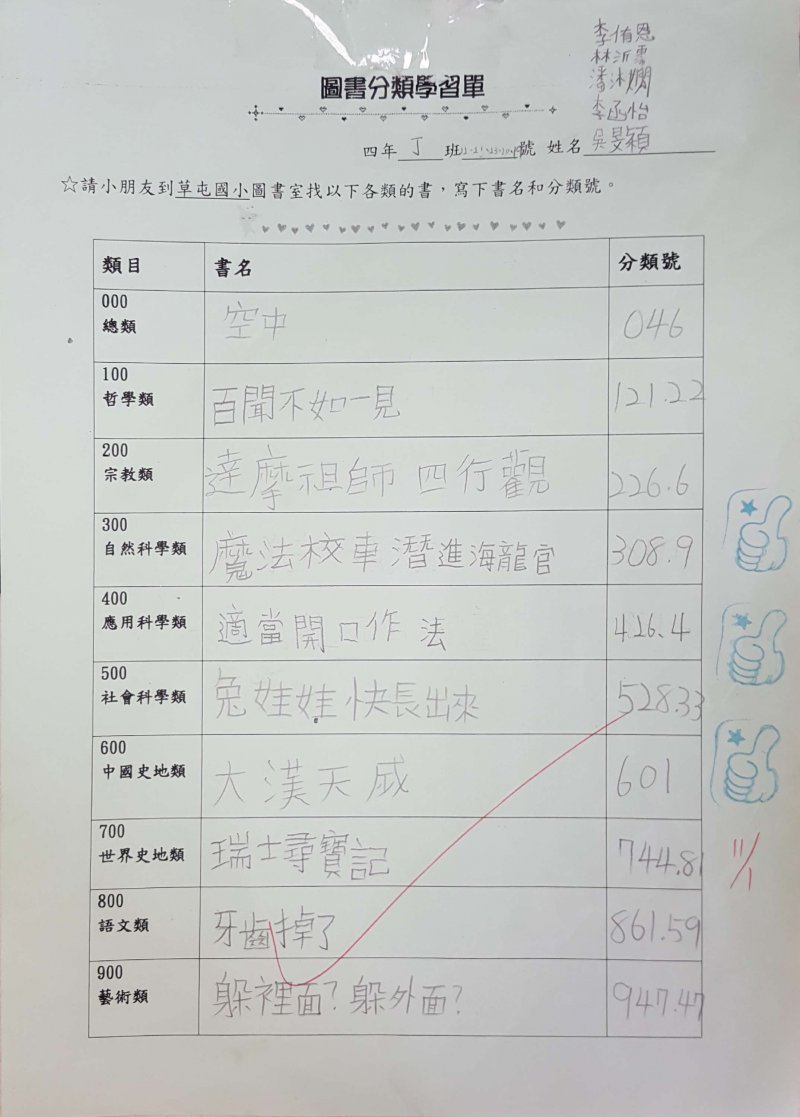 李侑恩
林沂霈
潘沐嫻
李函怡
吳旻穎
圖書分類學習單
四年 丁 班 號 姓名
☆請小朋友到草屯國小圖書室找以下各類的書，寫下書名和分類號。
類目 書名 分類號
000
總類 空中 046
100
哲學類 百聞不如一見 121.22
200
宗教類 達摩祖師 四行觀 226.6
300
自然科學類 魔法校車潛進海龍宮 308.9
400
應用科學類 適當開口作法 426.4
500
社會科學類 兔娃娃快長出來 528.33
600
中國史地類 大漢天威 601
700
世界史地類 瑞士尋寶記 744.81
800
語文類 牙齒掉了 861.59
900
藝術類 躲裡面？躲外面？ 947.47
11/1